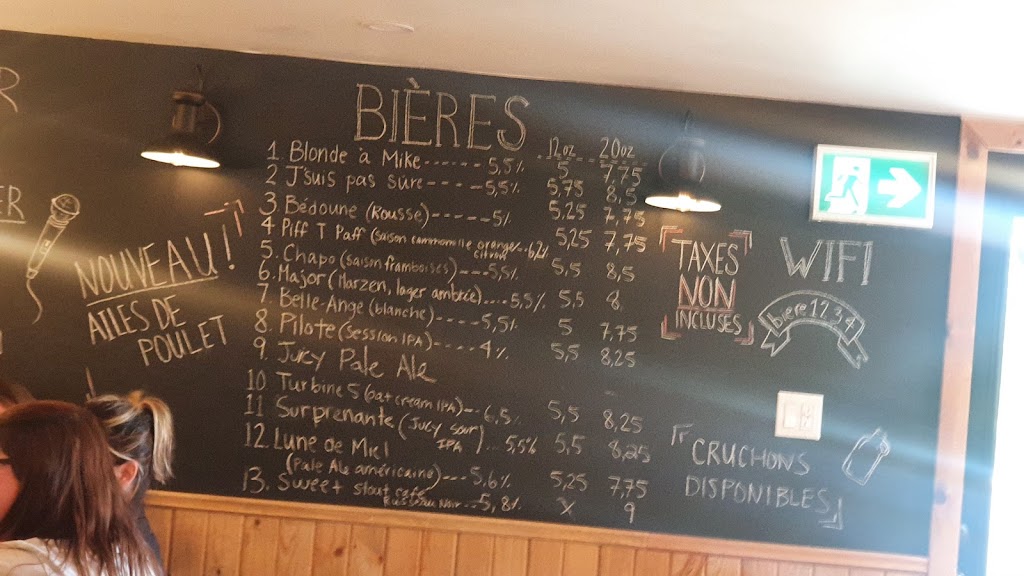 R
ER
NOUVEAU!
AILES DE
POULET
BIÈRES
12oz 20oz
1. Blonde à Mike------5,5% 5 7,75
2 J'suis pas sûre----5,5% 5,75 8,5
3 Bédoune (Rousse)-----5% 5,25 7,75
4 Piff T Paff (saison cammomille orange citron--6,2% 5,25 7,75
5. Chapo (saison framboises)---5,5% 5,5 8,5
6. Major (Marzen, lager ambrée)....5,5% 5,5 8
7. Belle-Ange (blanche)----5,5% 5 7,75
8. Pilote (session IPA)----4% 5,5 8,25
9. Juicy Pale Ale
10 Turbine 5 (oat cream IPA)--6,5% 5,5 8,25
11 Surprenante (Jucy sour IPA)...5,5% 5,5 8,25
12. Lune de Miel
(Pale Ale américaine)---5,6% 5,25 7,75
13. Sweet stout café
Noir--5,8% X 9
TAXES
NON
INCLUSES
WIFI
biere1234
CRUCHONS
DISPONIBLES